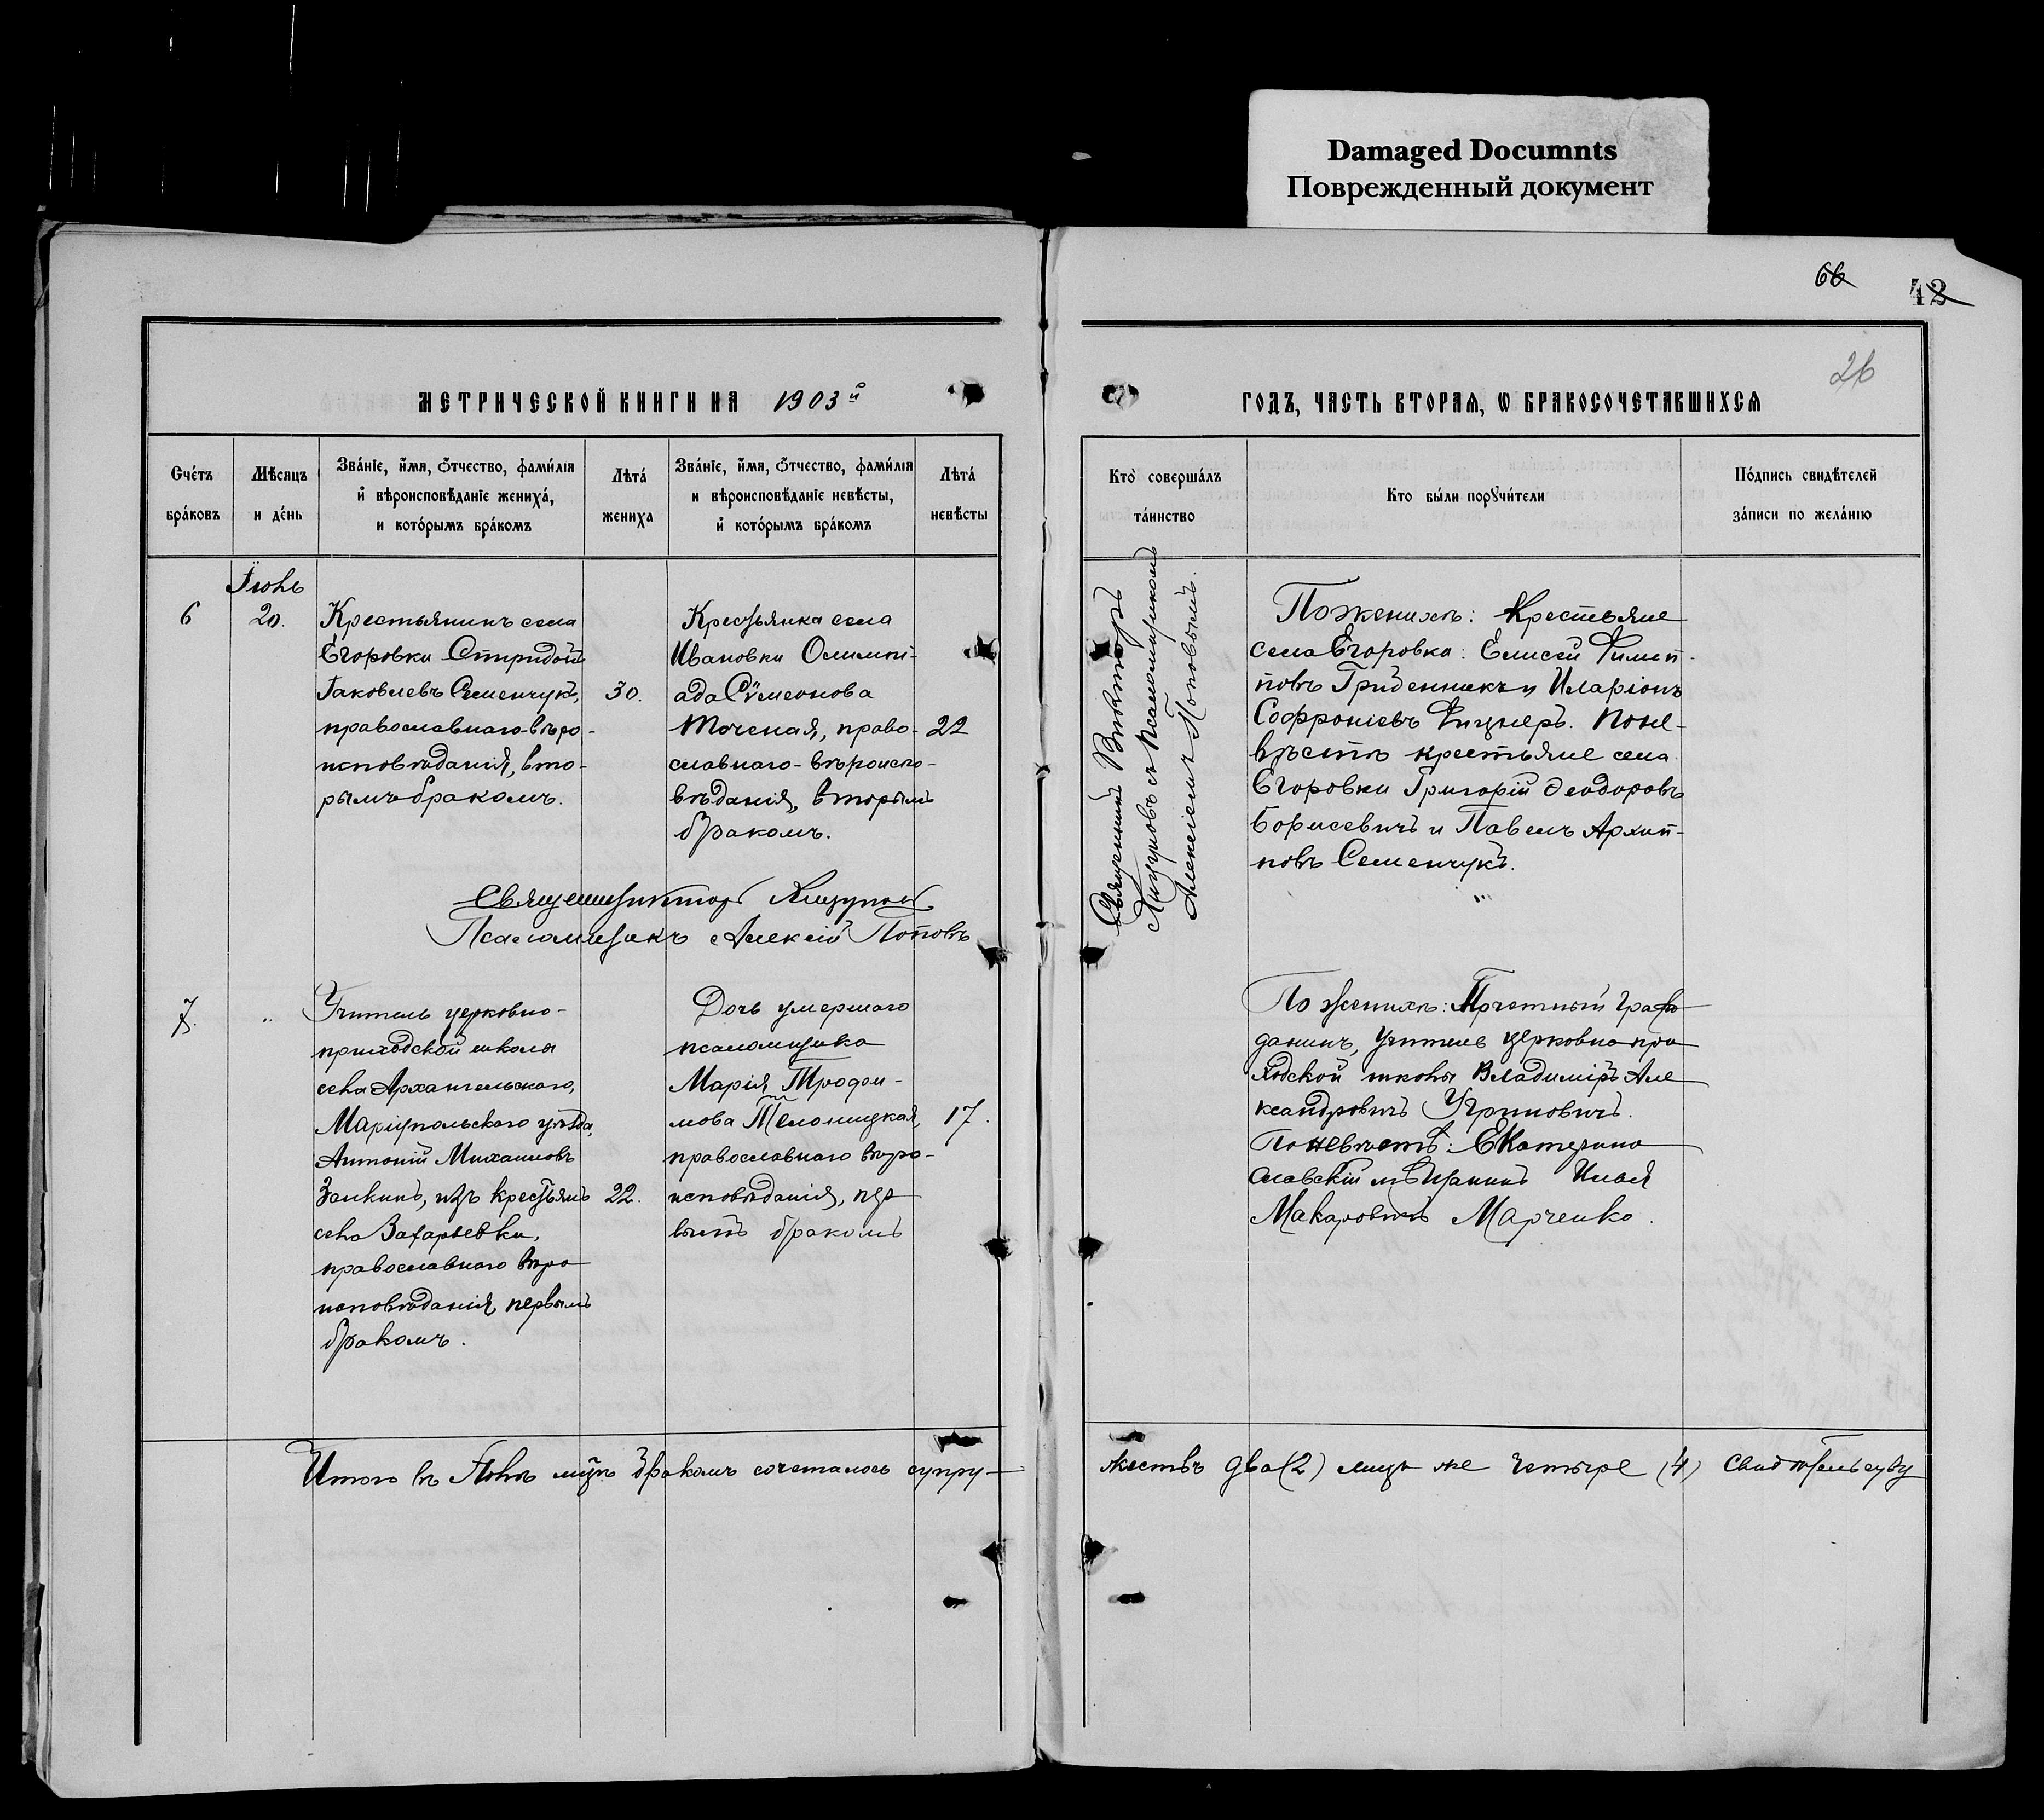 Damaged Documnts
Поврежденный документ
66
42
26
МЕТРИЧЕСКОЙ КНИГИ НА 1903й
ГОДЪ, ЧАСТЬ ВТОРАЯ, Ѡ БРАКОСОЧЕТАВШИХСЯ
Счетъ
браковъ
Мѣсяцъ
и день
Званіе, имя, отчество, фамилія
и вѣроисповѣданіе жениха,
и которымъ бракомъ
Лѣта
жениха
Званіе, имя, отчество, фамилія
и вѣроисповѣданіе невѣсты,
и которымъ бракомъ
Лѣта
невѣсты
Кто совершалъ
таинство
Кто были поручители
Подпись свидѣтелей
записи по желанію
6
Іюнь
20.
Крестьянинъ села
Егоровки Спиридонъ
Іаковлевъ Семенчукъ,
православнаго вѣро-
исповѣданія, вто-
рымъ бракомъ.
30.
Крестьянка села
Ивановки Олимпі-
ада Сѷмеонова
Точеная, право-
славнаго вѣроиспо-
вѣданія, вторымъ
бракомъ.
22
Священникъ Викторъ
Яцуновъ съ псаломщикомъ
Алексіемъ Поповымъ.
По женихѣ: крестьяне
села Егоровка: Елисей Филип-
повъ Гриденникъ и Иларіонъ
Софроніевъ Фицнеръ. По не-
вѣстѣ крестьяне села
Егоровки Григорій Ѳеодоровъ
Борисевичъ и Павелъ Архип-
повъ Семенчукъ.
Псаломщикъ Алексій Поповъ
7.
"
Учитель церковно-
приходской школы
села Архангельскаго,
Маріупольскаго уѣзда,
Антоній Михаиловъ
Заикинъ, изъ крестьянъ
села Захарьевки,
православнаго вѣро
исповѣданія, первымъ
бракомъ.
22.
Дочь умершаго
псаломщика
Марія Трофи-
мова
православнаго вѣро-
исповѣданія, пер
вымъ бракомъ
17.
По женихѣ: Почетный граж
данинъ, учитель церковно при
ходской школы Владиміръ Але
ксандровичъ Угриновичъ.
По невѣстѣ: Екатерино
славскій мѣщанинъ Илья
Макаровичъ Марченко.
Итого въ Іюнѣ мцѣ бракомъ сочеталось супру-
жествъ два (2) лицъ же четыре (4) свидѣтельству